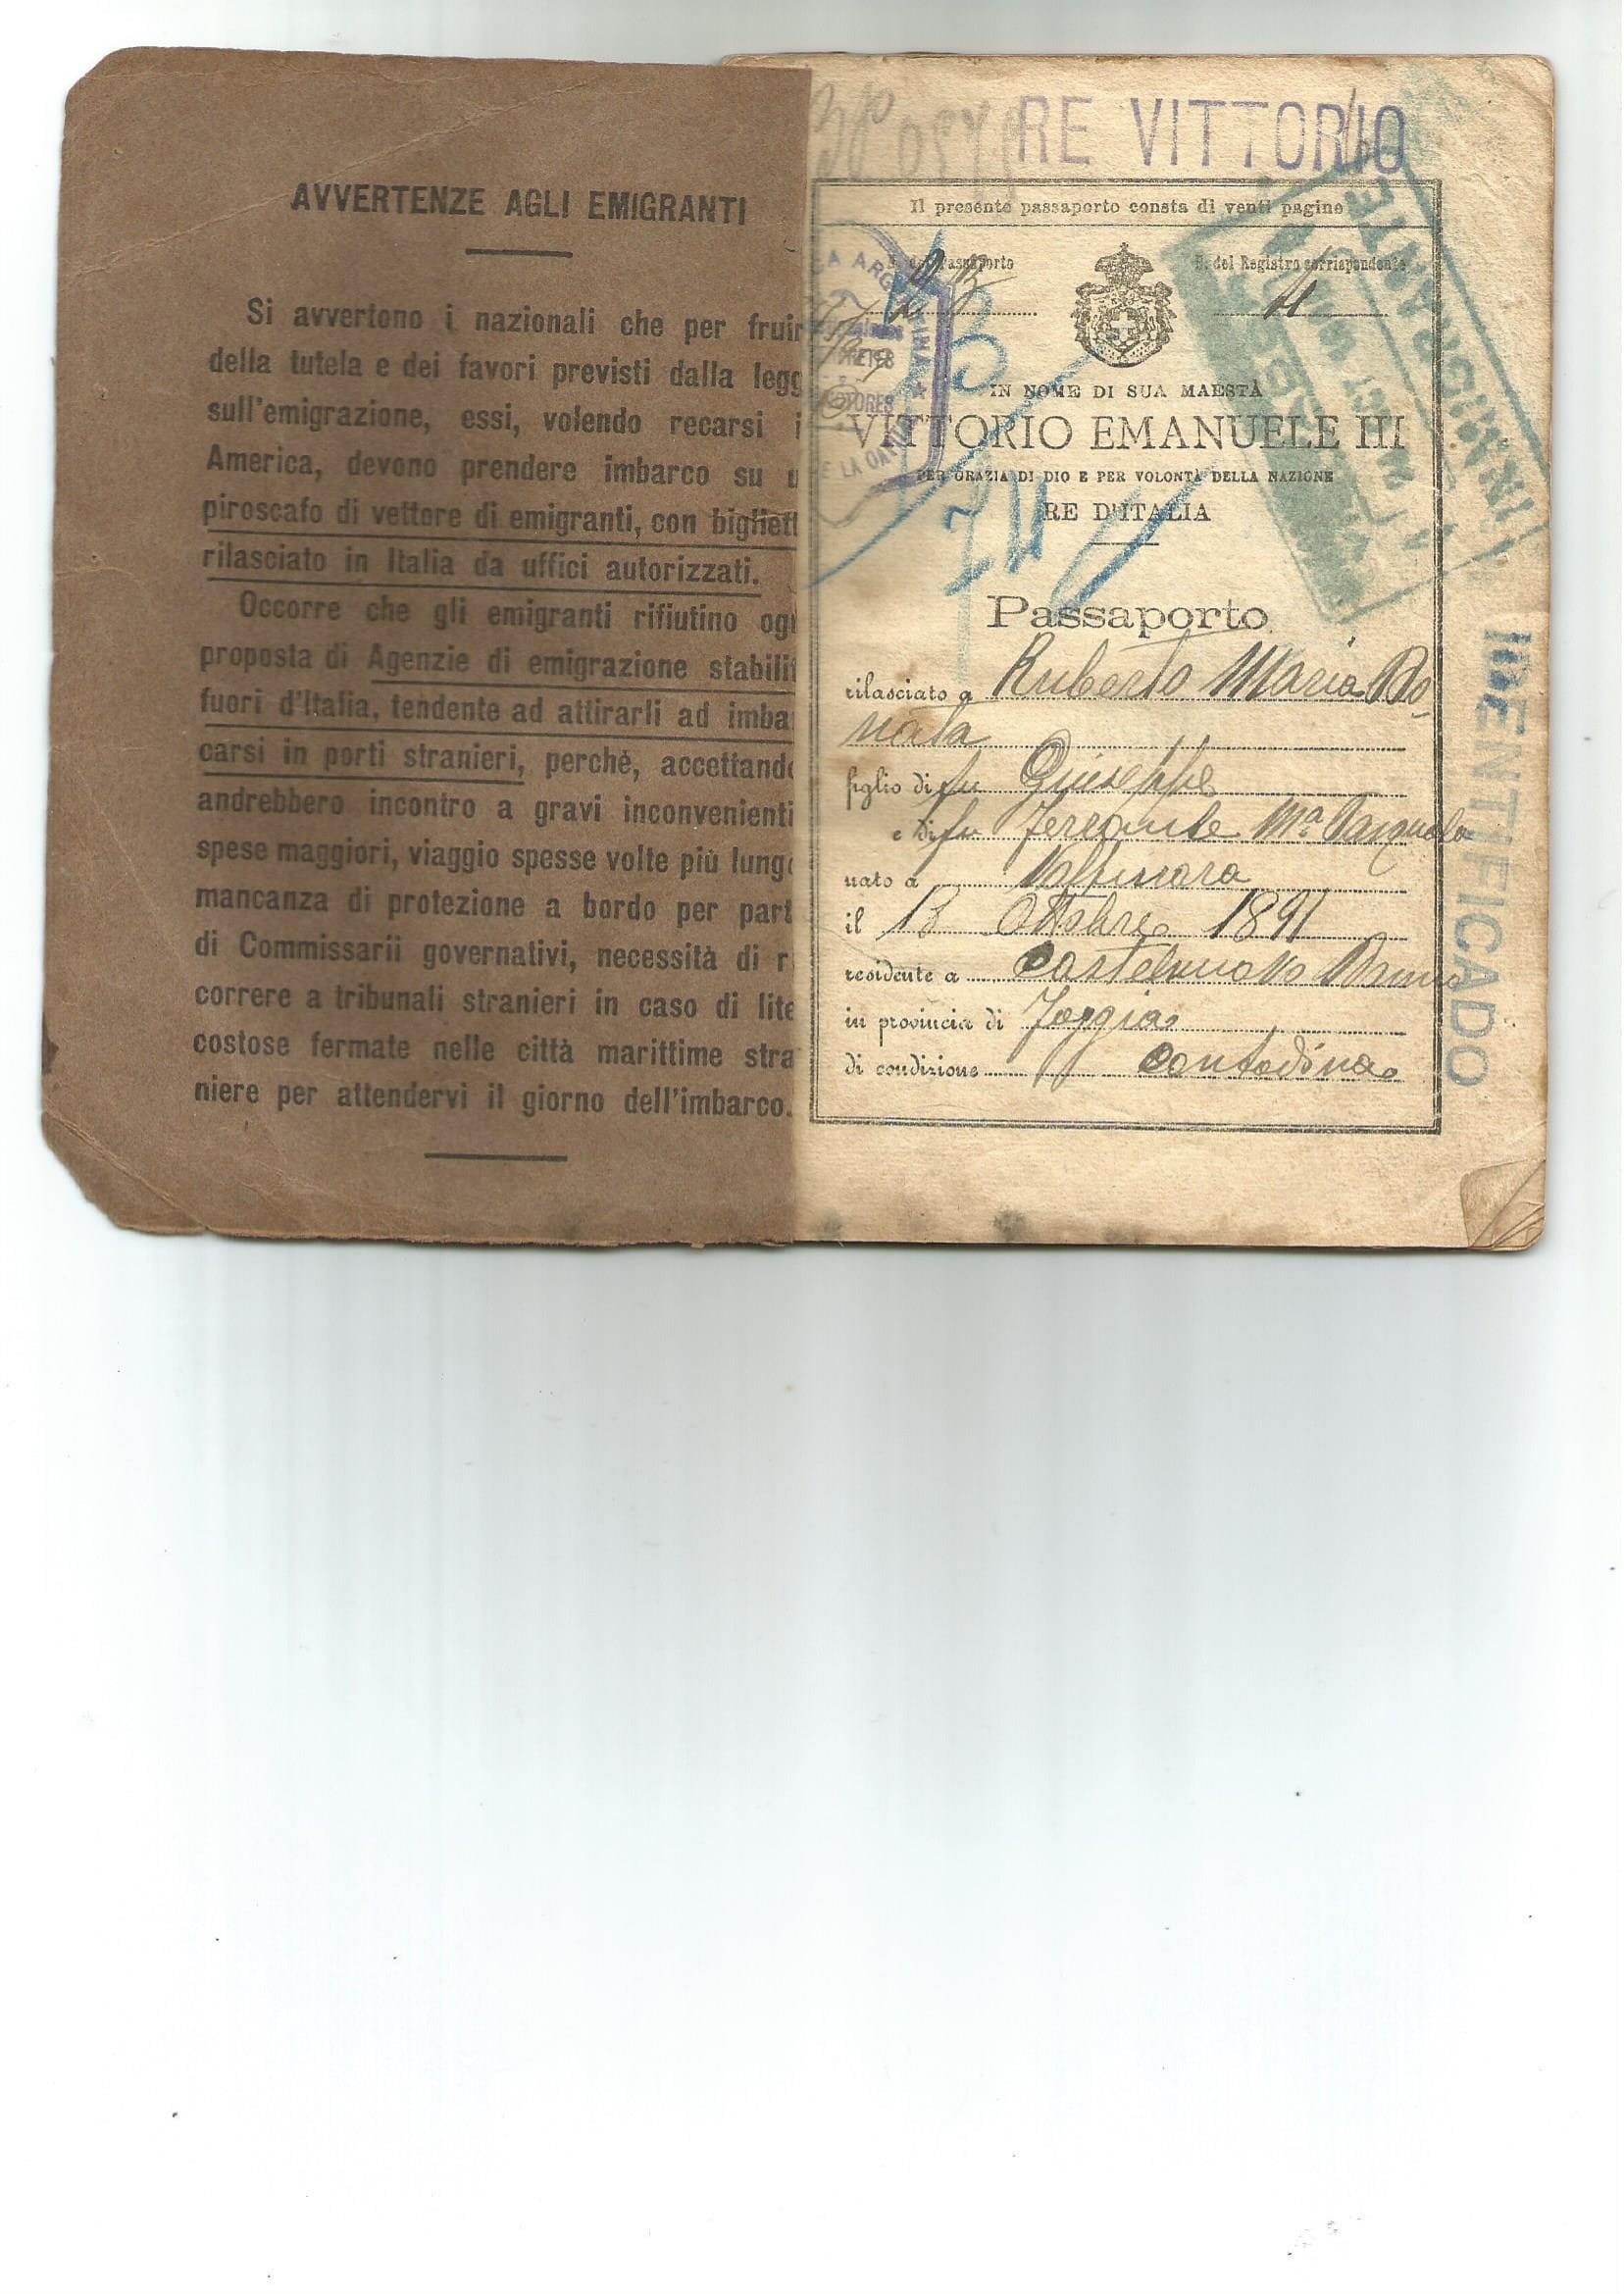 AVVERTENZE AGLI EMIGRANTI
Si avvertono i nazionali che per fruir
della tutela e dei favori previsti dalla legg
sull'emigrazione, essi, volendo recarsi i
America, devono prendere imbarco su u
piroscafo di vettore di emigranti, con bigliett
rilasciato in Italia da uffici autorizzati.
Occorre che gli emigranti rifiutino ogn
proposta di Agenzie di emigrazione stabilit
fuori d'Italia, tendente ad attirarli ad imba
carsi in porti stranieri, perchè, accettando
andrebbero incontro a gravi inconvenienti
spese maggiori, viaggio spesse volte più lungo
mancanza di protezione a bordo per part
di Commissarii governativi, necessità di r
correre a tribunali stranieri in caso di lite
costose fermate nelle città marittime stra
niere per attendervi il giorno dell'imbarco.
RE VITTORIO
Il presente passaporto consta di venti pagine
N. del Passaporto
N. del Registro corrispondente
IN NOME DI SUA MAESTÀ
VITTORIO EMANUELE III
PER GRAZIA DI DIO E PER VOLONTÀ DELLA NAZIONE
RE D'ITALIA
Passaporto
rilasciato a Ruberto Maria Do-
nata
figlio di fu Giuseppe
e di fu Mª Pasquala
nato a
il 13 Ottobre 1891
residente a Castelnuovo
in provincia di Foggia
di condizione contadina
INMIGRANTE
IDENTIFICADO